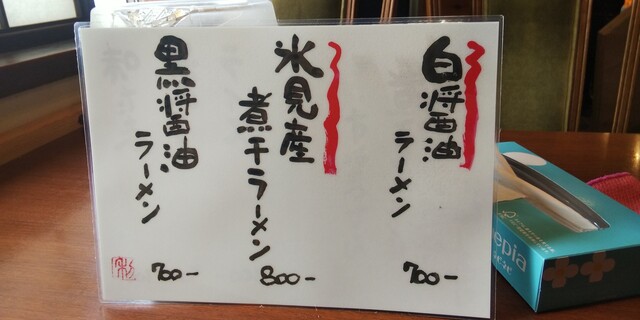 白醤油
ラーメン
700-
氷見産
煮干ラーメン
800-
黒醤油
ラーメン
700-
彩
epia